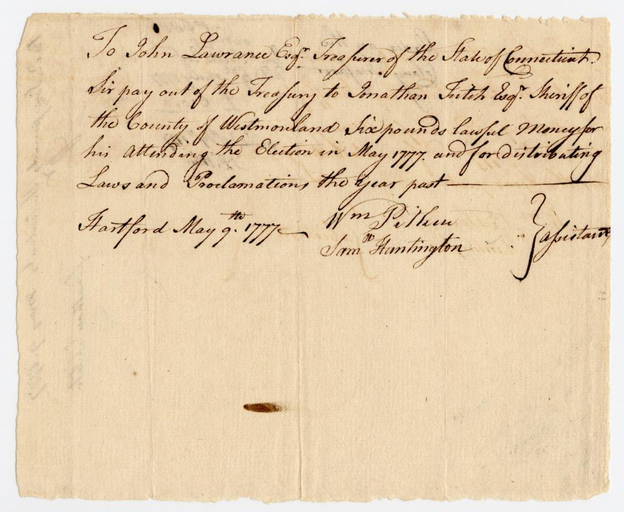 To John Lawrance Esqr. Treasurer of the State of Connecticut.
Sir pay out of the Treasury to Jonathan Fitch Esqr. Sheriff of
the County of Westmorland Six pounds lawful Money for
his Attending the Election in May 1777. and for distributing
Laws and Proclamations the Year past
Hartford May 9th. 1777
Wm Pitkin
Saml Huntington
} assistants